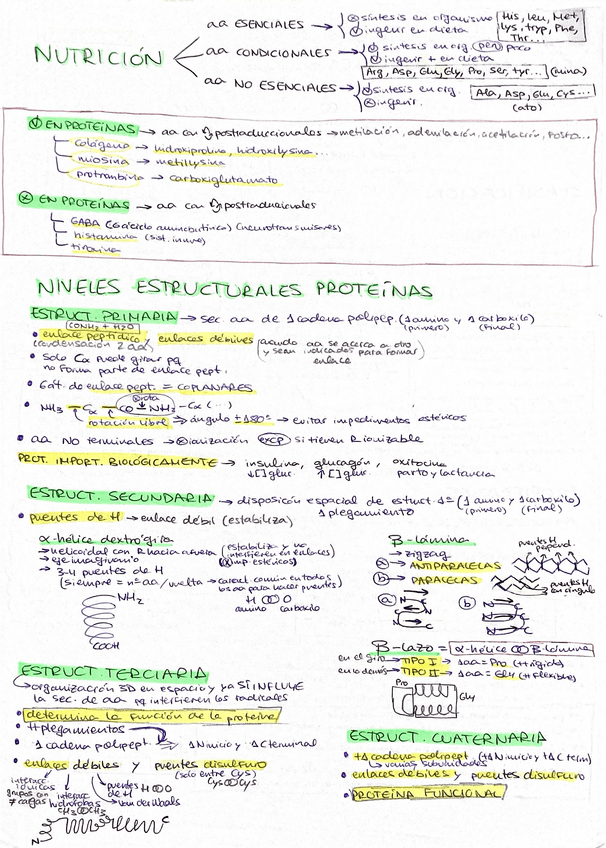 NUTRICIÓN
aa ESENCIALES → ⓧ síntesis en organismo
ingerir en dieta
His, leu, Met,
Lys, tryp, Phe,
Thr...
aa CONDICIONALES → síntesis en org. (pero) poco
ingerir + en dieta
Arg, Asp, Glu, Gly, Pro, Ser, tyr... (nina)
aa NO ESENCIALES → síntesis en org.
ⓧ ingerir.
Ala, Asp, Glu, Cys...
(ato)
EN PROTEÍNAS → aa con postraduccionales → metilación, adenilación, acetilación, fosfo...
colágeno → hidroxiprolina, hidroxilysina...
miosina → metillysina
protrombina → carboxiglutamato
ⓧ EN PROTEÍNAS → aa con postraduccionales
GABA (neurotransmisores)
histamina (sist. inmune)
tiroxina
NIVELES ESTRUCTURALES PROTEÍNAS
ESTRUCT. PRIMARIA → sec. aa de 1 cadena polipep. (1 amino y 1 carboxilo)
(primero) (final)
(CONH₂ + H₂O)
• enlace peptídico y enlaces débiles (cuando aa se acerca a otro
(condensación 2 aa)
y sean indicados para formar
enlace)
• Solo Cα puede girar pq
no forma parte de enlace pept.
• 6 át. de enlace pept. = COPLANARES
rota
• NH₃ — Cα — CO — NH₂ — Cα (...)
rotación libre → ángulo ± 180° → evitar impedimentos estéricos
• aa NO terminales → ionización excp si tienen R ionizable
PROT. IMPORT. BIOLÓGICAMENTE → insulina, glucagón, oxitocina
↓[] gluc. ↑[] gluc. parto y lactancia
ESTRUCT. SECUNDARIA → disposición espacial de estruct. 1ª = (1 amino y 1 carboxilo)
1 plegamiento (primero) (final)
• puentes de H → enlace débil (estabiliza)
α-hélice dextrógira
→ helicoidal con R hacia afuera (estabiliza y no
interfieren en enlaces)
→ eje imaginario (imp. estéricos)
→ 3-4 puentes de H
(siempre = nº aa/vuelta → caract. común en todos
los aa para hacer puentes)
NH₂
H O
amino carboxilo
COOH
β-lámina
→ zigzag
ⓐ → ANTIPARALELAS
puentes H
perpend.
ⓑ → PARALELAS
puentes H
en ángulo
ⓐ N C
N C
ⓑ N C
N C
β-lazo = α-hélice β-lámina
en el giro → TIPO I → 1aa = Pro (+ rígido)
→ TIPO II → 1aa = Gly (+ flexible)
Pro
Gly
ESTRUCT. TERCIARIA
→ organización 3D en espacio y ya SÍ INFLUYE
la sec. de aa pq interfieren los radicales
• determina la función de la proteína
• ++ plegamientos
• 1 cadena polipept. ⇒ 1 N inicio y 1 C terminal
• enlaces débiles y puentes disulfuro
(sólo entre Cys)
Cys Cys
interacc.
iónicas
grupos con
≠ cargas
interacc
hidrófobas
CH₃ CH₃
puentes
de H H O
van der Waals
N C
ESTRUCT. CUATERNARIA
• +1 cadena polipept (+1 N inicio y +1 C term)
→ varias subunidades
• enlaces débiles y puentes disulfuro
• PROTEÍNA FUNCIONAL